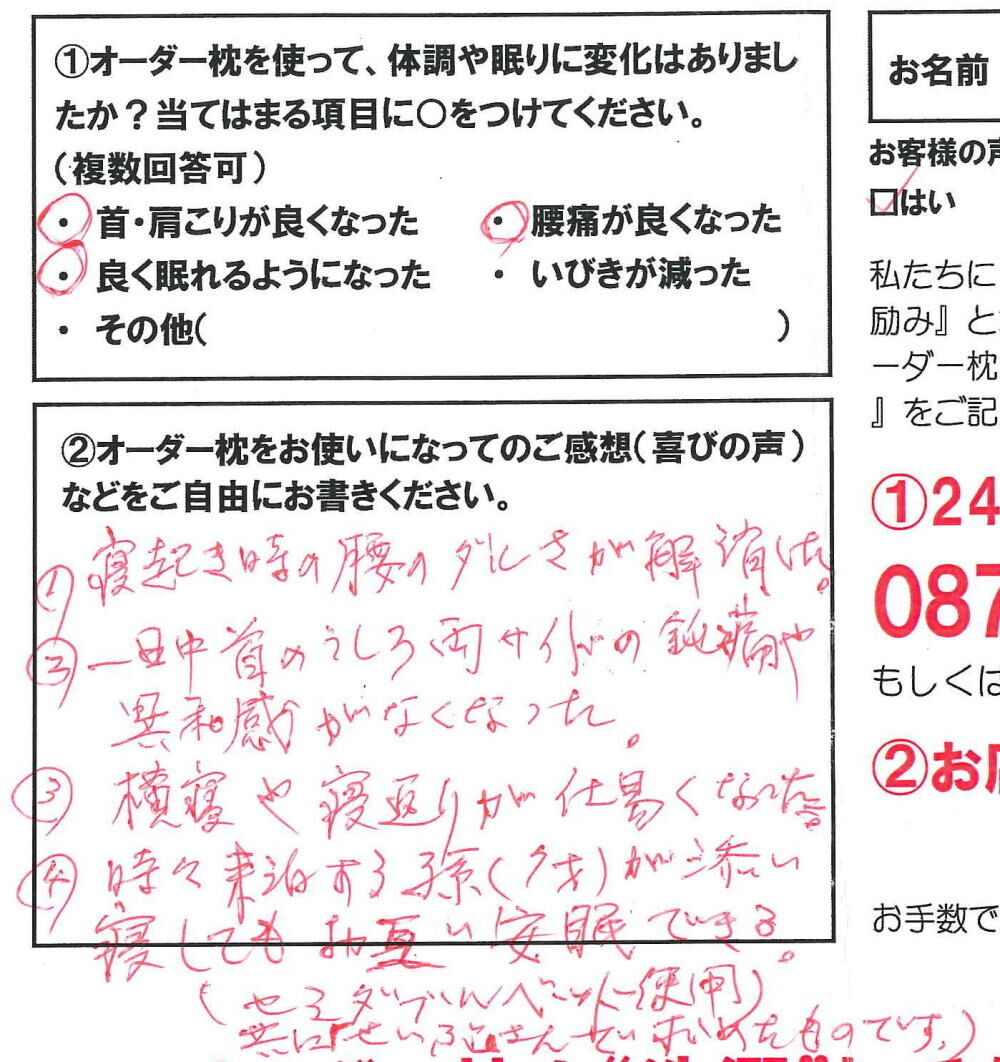 ①オーダー枕を使って、体調や眠りに変化はありまし
たか？当てはまる項目に○をつけてください。
（複数回答可）
・ 首・肩こりが良くなった ・ 腰痛が良くなった
・ 良く眠れるようになった ・ いびきが減った
・ その他( )
②オーダー枕をお使いになってのご感想(喜びの声)
などをご自由にお書きください。
① 寝起き時の腰のダルさが解消した。
② 一日中首のうしろ両サイドの鈍痛や
異和感がなくなった。
③ 横寝や寝返りが仕易くなった。
④ 時々来泊する孫(7才)が添い
寝してもお互い安眠できる。
(セミダブルベット使用)
共に さんで求めたものです。)
お名前
お客様の声
□はい
私たちに
励み』と
ーダー枕
』をご記
①24
087
もしくは
②お店
お手数で